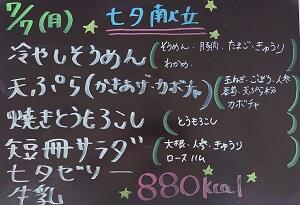 7/7(月) 七夕献立
冷やしそうめん(そうめん・豚肉・たまご・きゅうり
わかめ
天ぷら(かきあげ・カボチャ)(玉ねぎ・ごぼう・人参
天ぷら粉
カボチャ
焼きとうもろこし(とうもろこし
短冊サラダ(大根・人参・きゅうり
ロースハム
七夕ゼリー
牛乳 880kcal